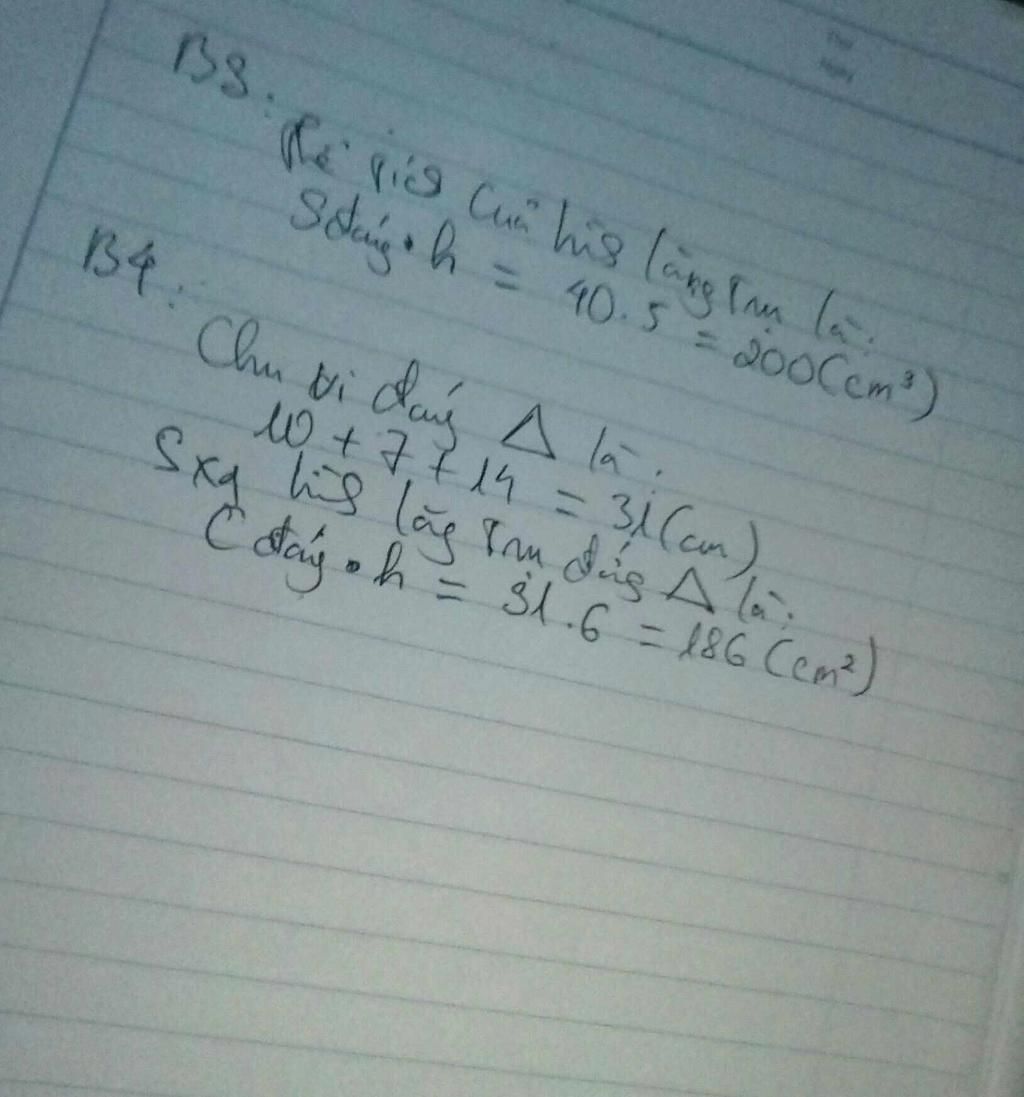 B3:
Thể tích của hìng lăng trụ là:
Sđáy.h = 40.5 = 200(cm³)
B4:
Chu vi đáy Δ là:
10 + 7 + 14 = 31(cm)
Sxq hìng lăg trụ đứg Δ là:
C đáy.h = 31.6 = 186 (cm²)